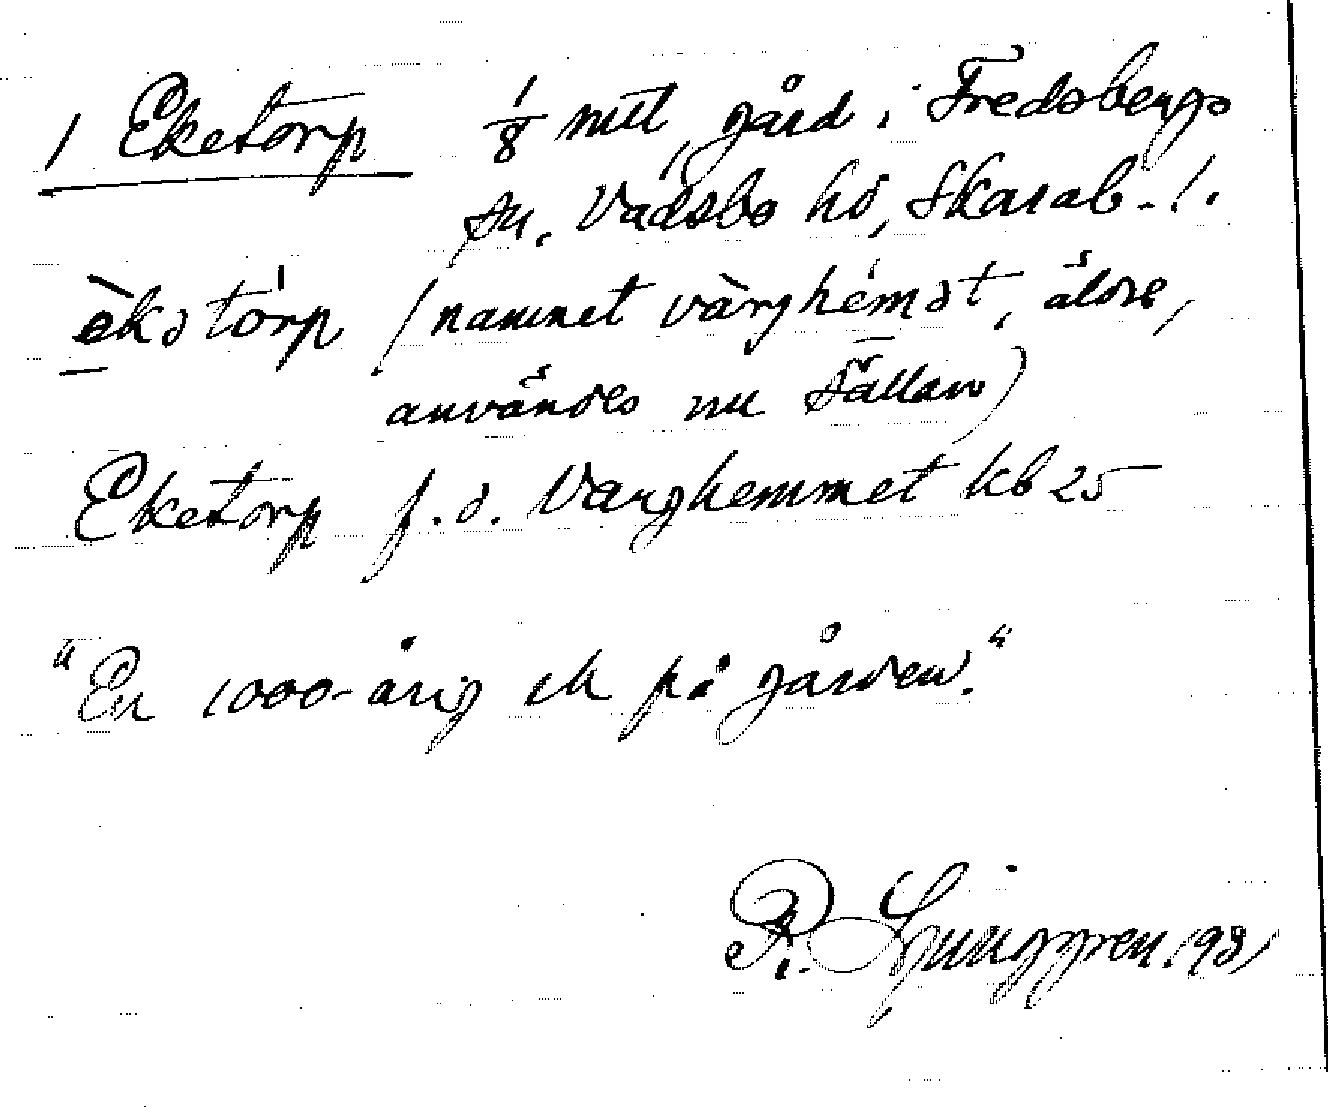 1 Eketorp 1/8 mtl, gård i Fredsbergs
sn. Vadsbo hd, Skarab. l.
èkstórp (namnet vàrghémst, äldre,
användes nu sällan)
Eketorp f.d. Varghemmet kb 25
"En 1000-årig ek på gården."
R. Ljunggren. 1931